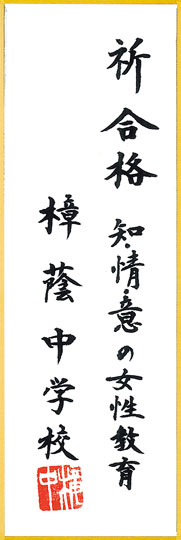 祈合格 知・情・意の女性教育
樟蔭中学校
樟中